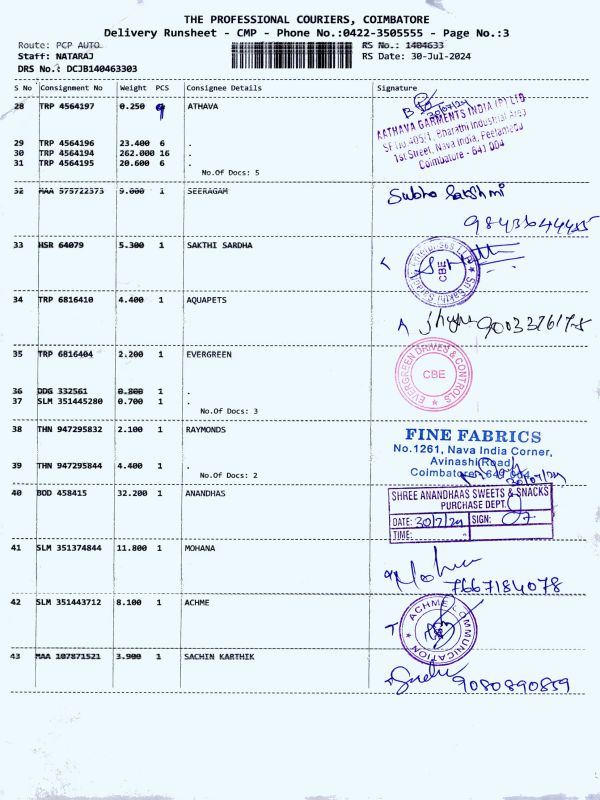 THE PROFESSIONAL COURIERS, COIMBATORE
Delivery Runsheet - CMP - Phone No.:0422-3505555 - Page No.:3
Route: PCP AUTO
RS No.: 1404633
Staff: NATARAJ
RS Date: 30-Jul-2024
DRS No.: DCJB140463303
S No Consignment No Weight PCS Consignee Details Signature
28 TRP 4564197 0.250 ATHAVA
30/07/24
AATHAVA GARMENTS INDIA (P) LTD
SF No 405/1, Bharathi Industrial Area
1st Street, Nava India, Peelamedu
Coimbatore - 641 004
29 TRP 4564196 23.400 6 .
30 TRP 4564194 262.000 16 .
31 TRP 4564195 20.600 6 .
No.Of Docs: 5
32 MAA 575722373 9.000 1 SEERAGAM
Subha Lakshmi
9843644455
33 HSR 64079 5.300 1 SAKTHI SARDHA
CBE
34 TRP 6816410 4.400 1 AQUAPETS
35 TRP 6816404 2.200 1 EVERGREEN
EVERGREEN DRIVES & CONTROLS
CBE
36 DDG 332561 0.800 1 .
37 SLM 351445280 0.700 1 .
No.Of Docs: 3
38 THN 947295832 2.100 1 RAYMONDS
FINE FABRICS
No.1261, Nava India Corner,
Avinashi Road,
Coimbatore - 641 004.
30/07/24
39 THN 947295844 4.400 1 .
No.Of Docs: 2
40 BOD 458415 32.200 1 ANANDHAS
SHREE ANANDHAAS SWEETS & SNACKS
PURCHASE DEPT.
DATE: 30/7/24 SIGN:
TIME:
41 SLM 351374844 11.800 1 MOHANA
Mohan
7667184078
42 SLM 351443712 8.100 1 ACHME
ACHME COMMUNICATION
43 MAA 107871521 3.900 1 SACHIN KARTHIK
9080890859